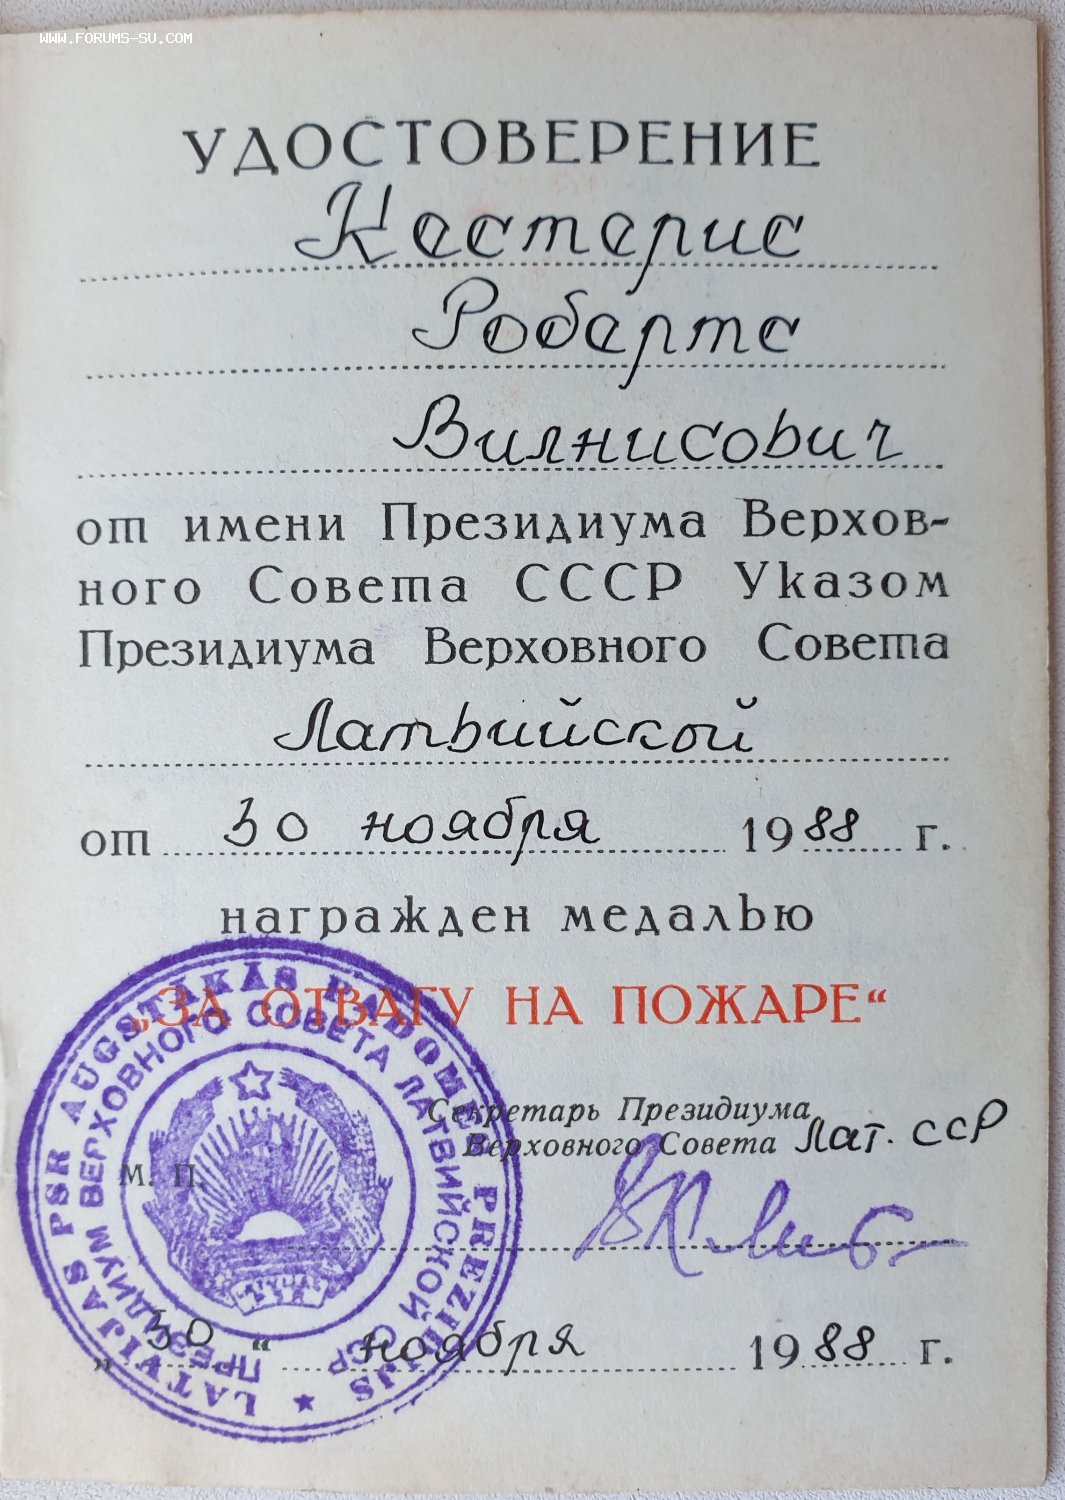 WWW.FORUMS-SU.COM
УДОСТОВЕРЕНИЕ
Кестерис
Робертс
Вилнисович
от имени Президиума Верхов-
ного Совета СССР Указом
Президиума Верховного Совета
Латвийской
от 30 ноября 1988 г.
награжден медалью
„ЗА ОТВАГУ НА ПОЖАРЕ“
Секретарь Президиума
Верховного Совета Лат. ССР
М. П.
„30“ ноября 1988 г.
LATVIJAS PSR AUGSTĀKĀS PADOMES PREZIDIJS
ПРЕЗИДИУМ ВЕРХОВНОГО СОВЕТА ЛАТВИЙСКОЙ ССР